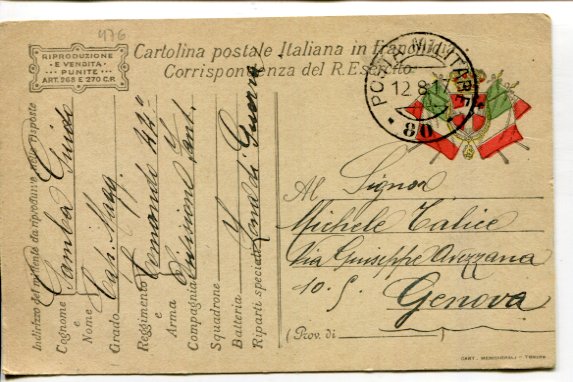 476
RIPRODUZIONE
E VENDITA
PUNITE
ART. 268 E 270 C.P.
Cartolina postale Italiana in franchigia
Corrispondenza del R. Esercito
POSTA MILITARE
12.8.17
80
Indirizzo del mittente da riprodurre nelle risposte
Cognome Gamba Guido
e
Nome
Grado Cap. Magg.
Reggimento Comando 42º
e
Arma Divisione Fant.
Compagnia
Squadrone
Batteria
Riparti speciali Zona di Guerra
Al Signor
Michele Talice
Via Giuseppe Avezzana
10.
Genova
(Prov. di )